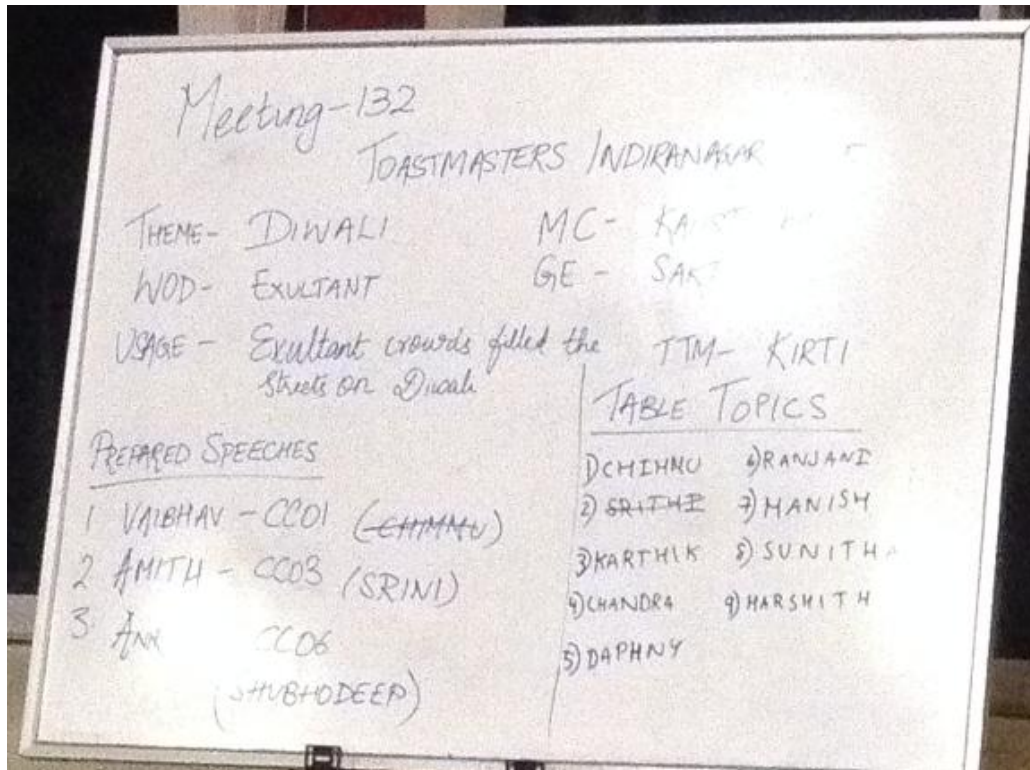 Meeting-132
TOASTMASTERS INDIRANAGAR
THEME- DIWALI
MC-
WOD- EXULTANT
GE-
USAGE- Exultant crowds filled the
streets on Diwali
TTM- KIRTI
PREPARED SPEECHES
1 VAIBHAV - CC01 (CHIMMU)
2 AMITH - CC03 (SRINI)
3 CC06
(SHUBHODEEP)
TABLE TOPICS
1) CHIMMU
2) SRITHI
3) KARTHIK
4) CHANDRA
5) DAPHNY
6) RANJANI
7) MANISH
8) SUNITHA
9) HARSHITH